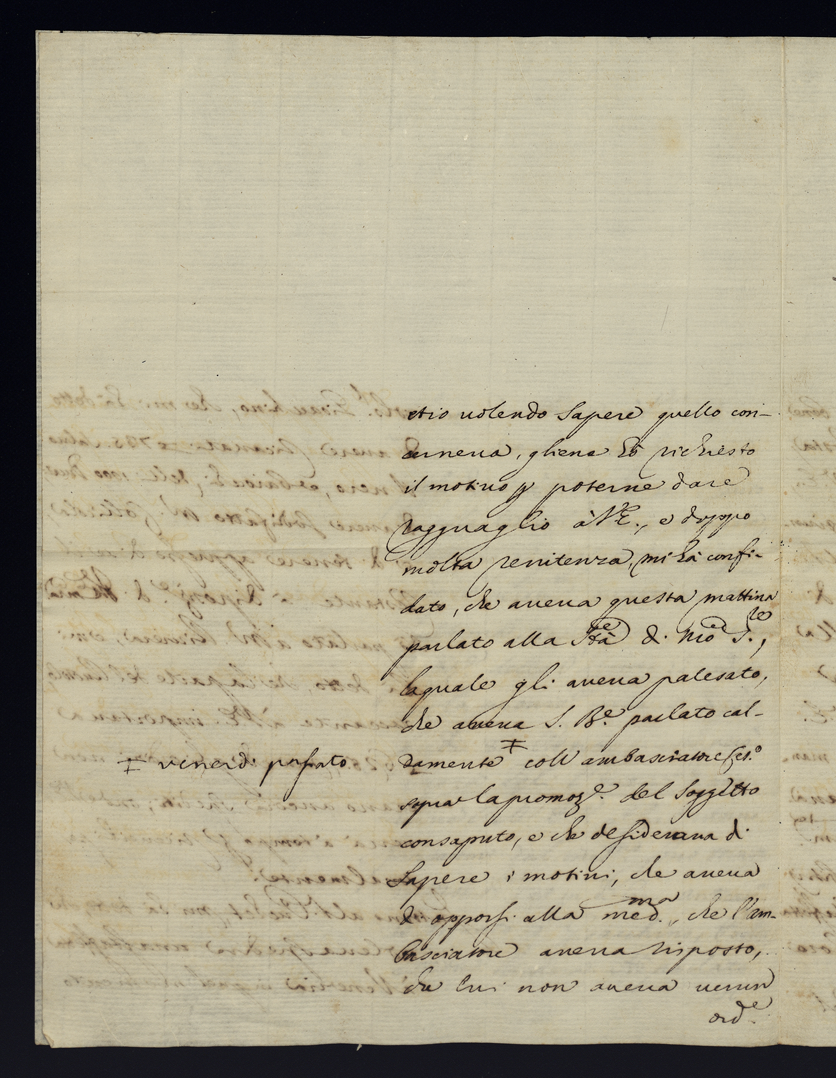 etio volendo sapere quello con-
cerneva, gliene hò richiesto
il motivo p poterne dare
ragguaglio à V.E., e doppo
molta renitenza, mi hà confi-
dato, che aveva questa mattina
parlato alla Stà d. Nro S.re,
laquale gli aveva palesato,
che aveva S. Be. parlato cal-
damente ‡ coll ambasciatore Ces.o
sopra la promoz.e del soggetto
consaputo, e che desiderava di
sapere i motivi, che aveva
d opporsi alla med.ma, che l'am-
basciatore aveva risposto,
che lui non aveva verun
ord.e
‡ venerdi passato